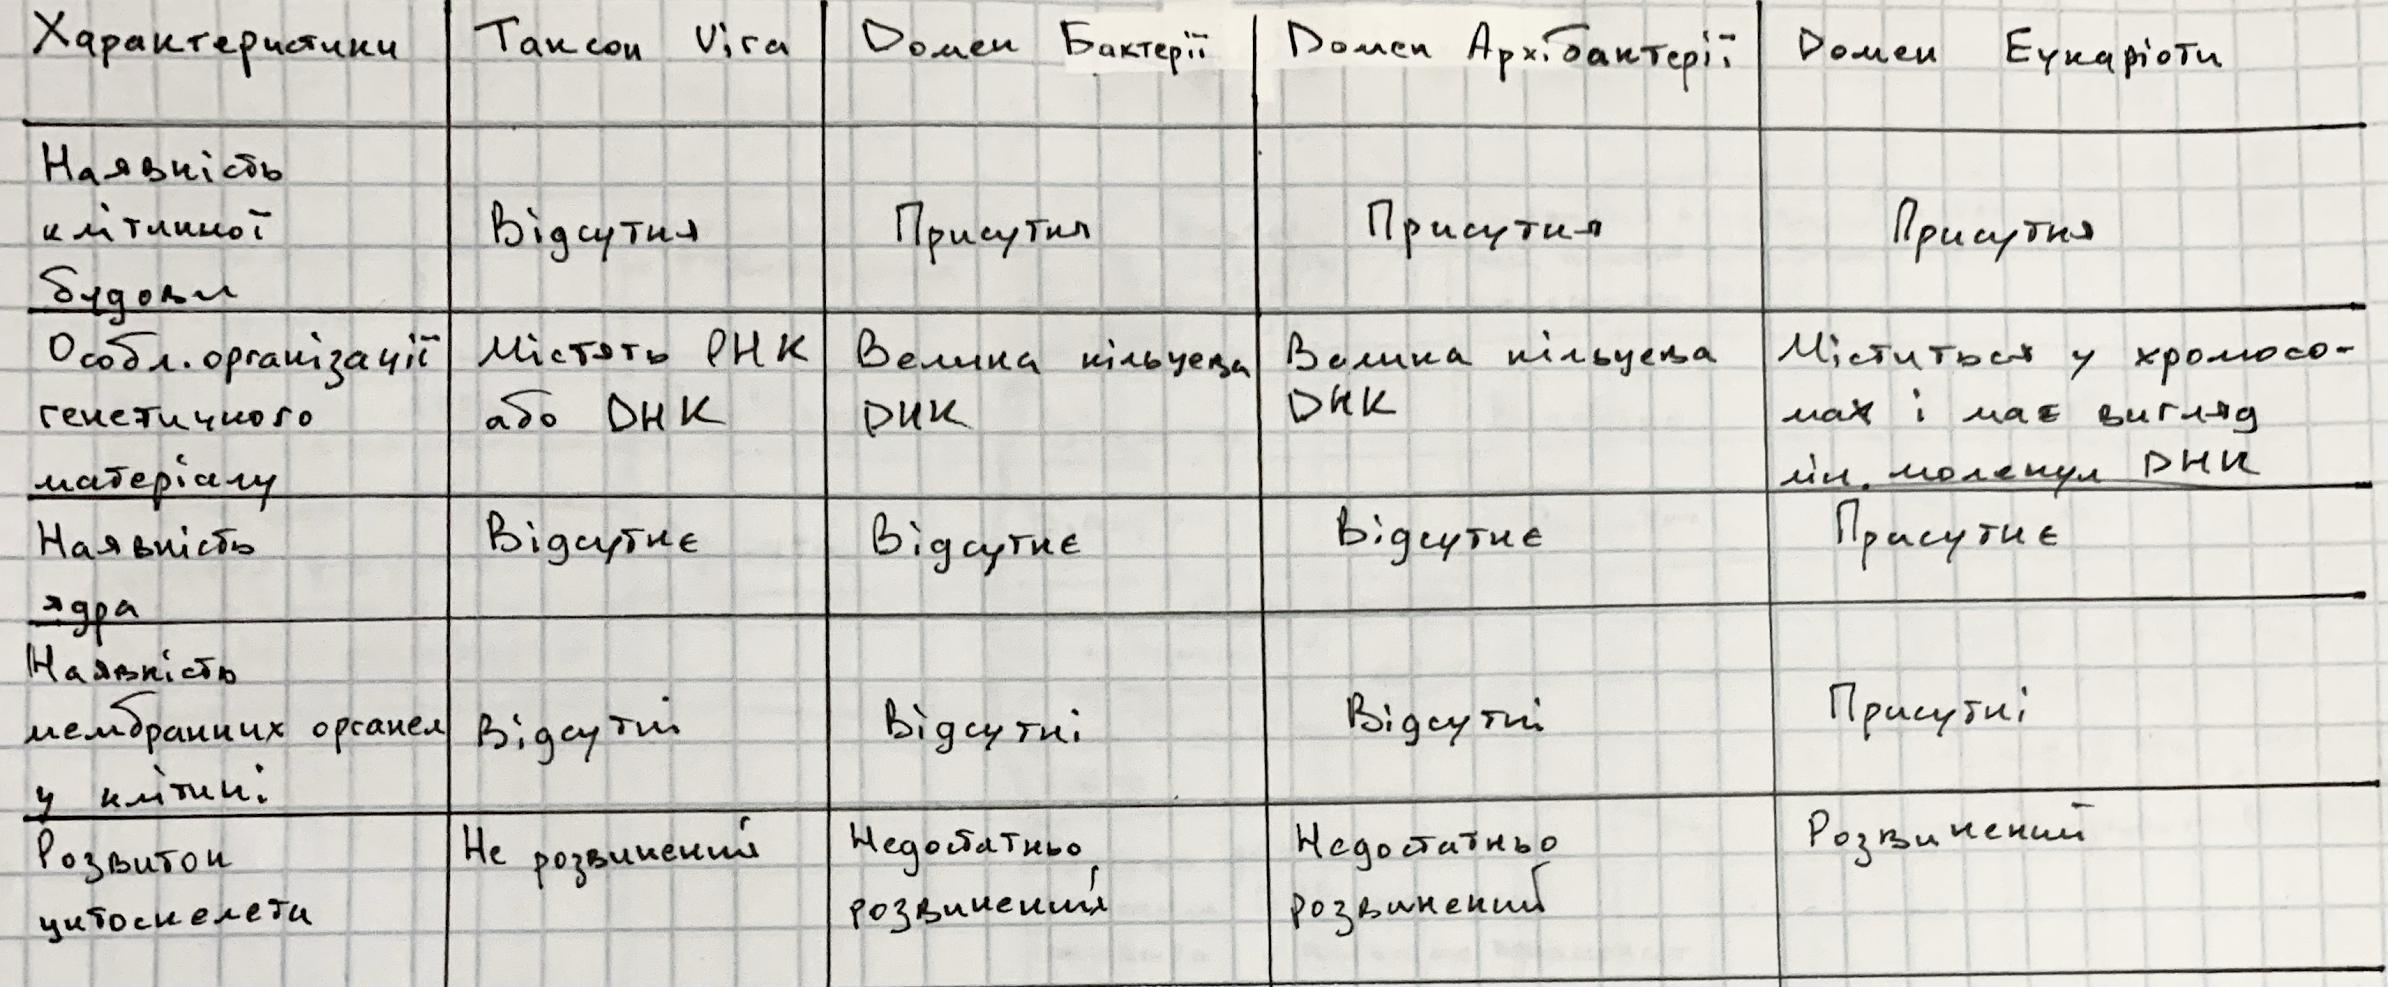 Характеристики
Таксон Vira
Домен Бактерії
Домен Архібактерії
Домен Еукаріоти
Наявність
клітинної
будови
Відсутня
Присутня
Присутня
Присутня
Особл. організації
генетичного
матеріалу
Містять РНК
або ДНК
Велика кільцева
ДНК
Велика кільцева
ДНК
Міститься у хромосо-
мах і має вигляд
лін. молекул ДНК
Наявність
ядра
Відсутнє
Відсутнє
Відсутнє
Присутнє
Наявність
мембранних органел
у клітині
Відсутні
Відсутні
Відсутні
Присутні
Розвиток
цитоскелета
Не розвинений
Недостатньо
розвинений
Недостатньо
розвинений
Розвинений